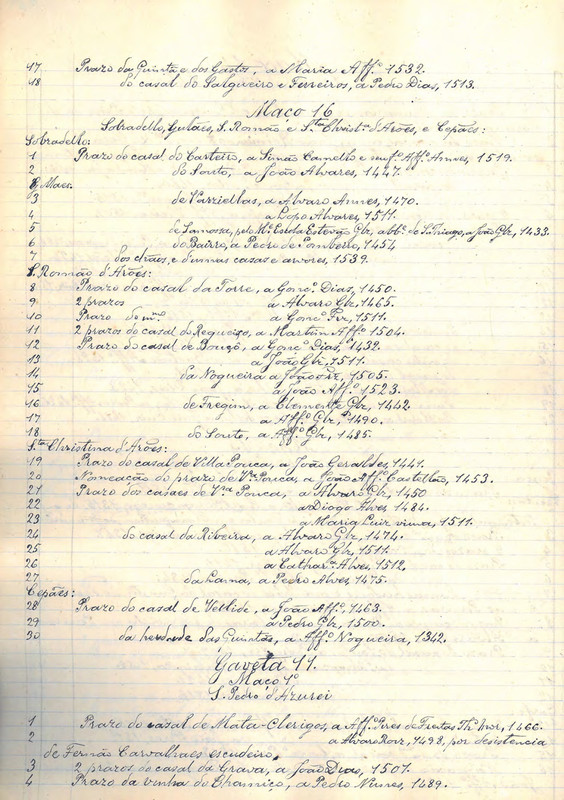 17 Prazo da Quintã e dos Gastos, a Maria Aff.º 1532.
18 do casal do Salgueiro e Ferreiros, a Pedro Dias, 1513.
Maço 16
Sobradello, Gulães, S. Romão e S.ta Christ.ª d'Arões, e Cepães:
Sobradello:
1 Prazo do casal do Carteiro, a Simão Camello e Aff.ª Annes, 1519.
2 do Souto, a João Alvares, 1447.
3 de Varziellas, a Alvaro Annes, 1470.
4 a Lopo Alvares, 1511.
5 de Samossa, pelo M.e Escola Estevão Glz, abb.e de S. Thiago, a João Glz, 1433.
6 do Bairro, a Pedro de 1454
7 dos chãos, e d'umas casas e arvores, 1539.
S. Romão d'Arões:
8 Prazo do casal da Torre, a Gonç.º Dias, 1450.
9 2 prazos a Alvaro Glz, 1465.
10 Prazo do m.mo a Gonç.º Frz, 1511.
11 2 prazos do casal do Requeixo, a Martim Aff.º 1504.
12 Prazo do casal de Bouçô, a Gonç.º Dias, 1432.
13 a João Glz, 1511.
14 da Nogueira a 1505.
15 a João Aff.º 1523.
16 de Fregim, a Clemente Glz, 1442.
17 a Aff.º Glz, 1490.
18 do Souto, a Aff.º Glz, 1485.
S.ta Christina d'Arões:
19 Prazo do casal de Villa Pouca, a João Geraldes, 1441.
20 Nomeação do prazo de V.ª Pouca, a João Aff.º Castellão, 1453.
21 Prazo dos casaes de V.ra Pouca, a Alvaro Glz, 1450
22 a Diogo Alves, 1484.
23 a Maria Luiz viuva, 1511.
24 do casal da Ribeira, a Alvaro Glz, 1474.
25 a Alvaro Glz, 1511.
26 a Cathar.ª Alves, 1512.
27 da Lama, a Pedro Alves, 1475.
Cepães:
28 Prazo do casal de Vettide, a João Aff.º 1463.
29 a Pedro Glz, 1500.
30 da herdade das Quintãs, a Aff.º Nogueira, 1342.
Gaveta 11.
Maço 1º
S. Pedro d'Azurei
1 Prazo do casal de Mata-Clerigos, a Aff.º Pires de Freitas Th.º mor, 1466.
2 a Alvaro Roiz, 1498, por desistencia
de Fernão Carvalhaes escudeiro.
3 2 prazos do casal da Grava, a João Dias, 1507.
4 Prazo da vinha do Chamiço, a Pedro Nunes, 1489.